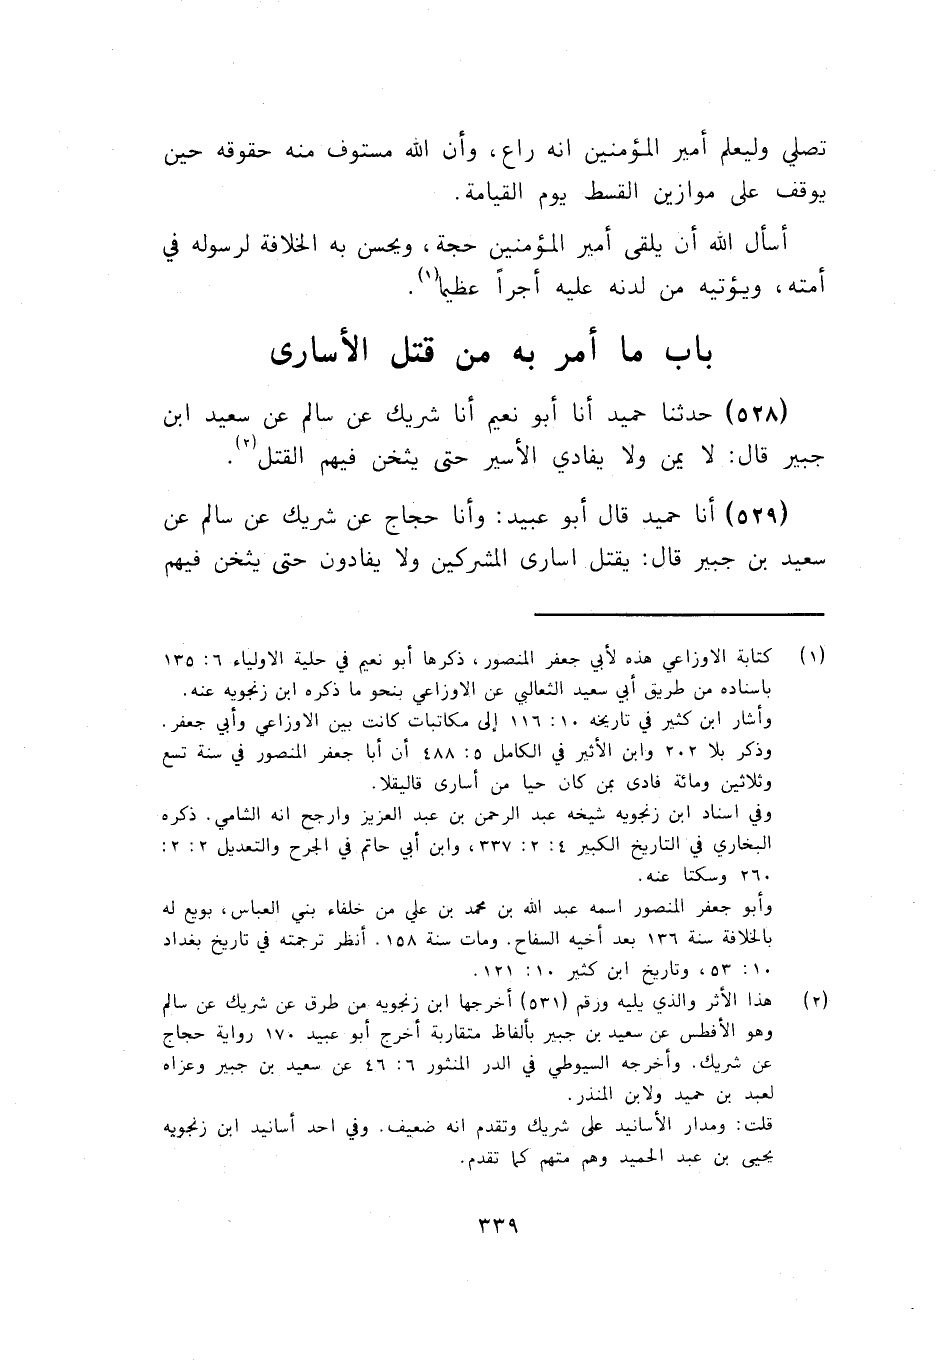 تصلي وليعلم أمير المؤمنين انه راع، وأن الله مستوف منه حقوقه حين
يوقف على موازين القسط يوم القيامة.
أسأل الله أن يلقى أمير المؤمنين حجة، ويحسن به الخلافة لرسوله في
أمته، ويؤتيه من لدنه عليه أجراً عظيما(١).
باب ما أمر به من قتل الأسارى
(٥٢٨) حدثنا حميد أنا أبو نعيم أنا شريك عن سالم عن سعيد ابن
جبير قال: لا يمن ولا يفادي الأسير حتى يثخن فيهم القتل(٢).
(٥٢٩) أنا حميد قال أبو عبيد: وأنا حجاج عن شريك عن سالم عن
سعيد بن جبير قال: يقتل اسارى المشركين ولا يفادون حتى يثخن فيهم
(١) كتابة الاوزاعي هذه لأبي جعفر المنصور، ذكرها أبو نعيم في حلية الاولياء ٦: ١٣٥
باسناده من طريق أبي سعيد الثعالبي عن الاوزاعي بنحو ما ذكره ابن زنجويه عنه.
وأشار ابن كثير في تاريخه ١٠: ١١٦ إلى مكاتبات كانت بين الاوزاعي وأبي جعفر.
وذكر بلا ٢٠٢ وابن الأثير في الكامل ٥: ٤٨٨ أن أبا جعفر المنصور في سنة تسع
وثلاثين ومائة فادى بمن كان حيا من أسارى قاليقلا.
وفي اسناد ابن زنجويه شيخه عبد الرحمن بن عبد العزيز وارجح انه الشامي. ذكره
البخاري في التاريخ الكبير ٤: ٢: ٣٣٧، وابن أبي حاتم في الجرح والتعديل ٢: ٢:
٢٦٠ وسكتا عنه.
وأبو جعفر المنصور اسمه عبد الله بن محمد بن علي من خلفاء بني العباس، بويع له
بالخلافة سنة ١٣٦ بعد أخيه السفاح. ومات سنة ١٥٨. أنظر ترجمته في تاريخ بغداد
١٠: ٥٣، وتاريخ ابن كثير ١٠: ١٢١.
(٢) هذا الأثر والذي يليه ورقم (٥٣١) أخرجها ابن زنجويه من طرق عن شريك عن سالم
وهو الأفطس عن سعيد بن جبير بألفاظ متقاربة أخرج أبو عبيد ١٧٠ رواية حجاج
عن شريك. وأخرجه السيوطي في الدر المنثور ٦: ٤٦ عن سعيد بن جبير وعزاه
لعبد بن حميد ولابن المنذر.
قلت: ومدار الأسانيد على شريك وتقدم انه ضعيف. وفي احد أسانيد ابن زنجويه
يحيى بن عبد الحميد وهم متهم كما تقدم.
٣٣٩